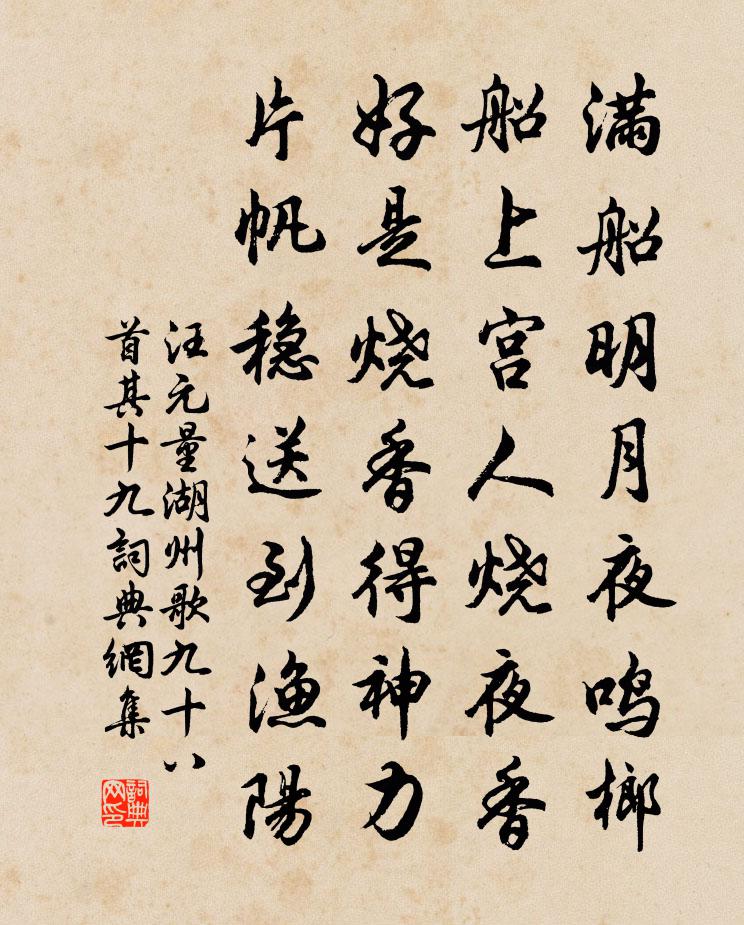 满船明月夜鸣榔
船上宫人烧夜香
好是烧香得神力
片帆稳送到渔陽
汪元量湖州歌九十八
首其十九詞典網集
詞典
网印